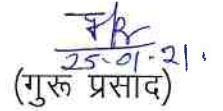 25-01-21.
(गुरू प्रसाद)